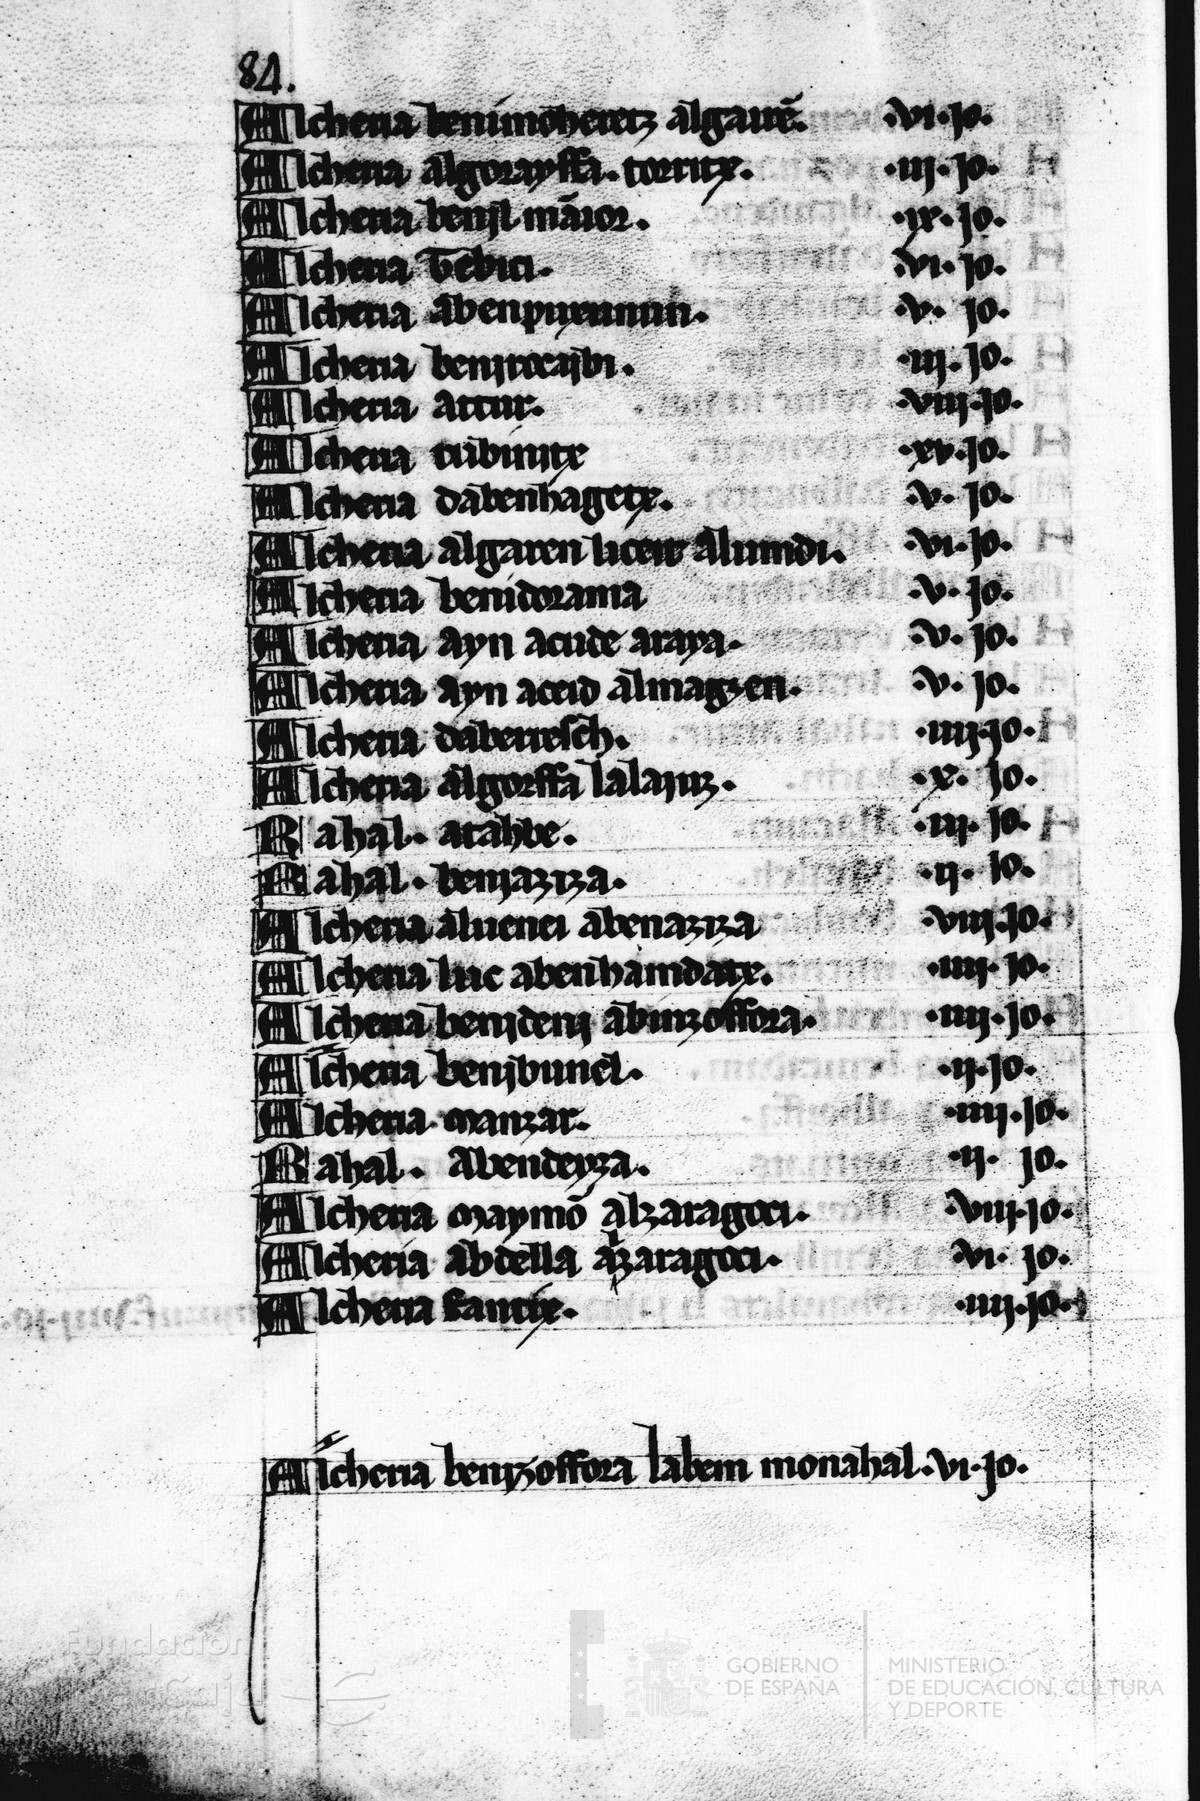 84.
Alcheria benimoheretz algarẽ. .vi. jo.
Alcheria algorayffa. tortitx. .iij. jo.
Alcheria benijl māior. .ix. jo.
Alcheria .vi. jo.
Alcheria .v. jo.
Alcheria .iij. jo.
Alcheria attur. .viij. jo.
Alcheria .xv. jo.
Alcheria dabenhagetx. .v. jo.
Alcheria algaren .vi. jo.
Alcheria benidorama .v. jo.
Alcheria ayn acude araya. .v. jo.
Alcheria ayn aceid almagzen. .v. jo.
Alcheria daberresch. .iiij. jo.
Alcheria algorffa .x. jo.
Rahal. atahbe. .iij. jo.
Rahal. beniaziza. .ij. jo.
Alcheria aluenei abenaziza .viij. jo.
Alcheria luc abenhamdatx. .iiij. jo.
Alcheria benideni abinzoffora. .iiij. jo.
Alcheria benibunel. .ij. jo.
Alcheria. manzar. .iiij. jo.
Rahal. Abendeyza. .ij. jo.
Alcheria maymō alzaragoci. .viij. jo.
Alcheria abdella azaragoci. .vi. jo.
Alcheria .iiij. jo.
Alcheria benizoffora labem monahal. .vi. jo.
Fundación
GOBIERNO DE ESPAÑA
MINISTERIO DE EDUCACIÓN, CULTURA Y DEPORTE